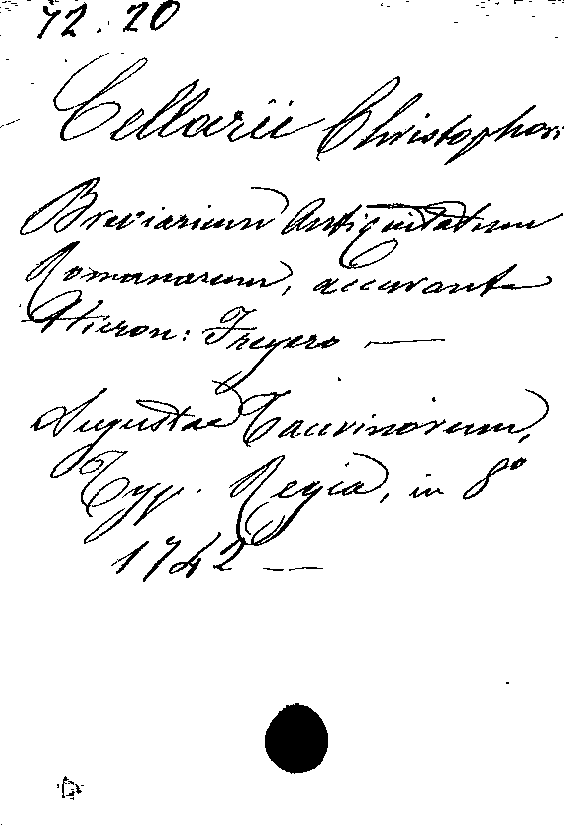 72.20
Cellarii Christophori
Breviarium Antiquitatum
Romanarum, accurante
Hieron: Freyero —
Augustae Taurinorum,
Typ. Regia, in 8º
1742 —